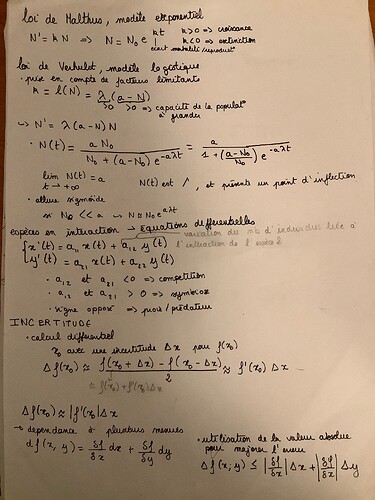 loi de Malthus, modèle exponentiel
N' = k N => N = N₀ e^{kt} k>0 => croissance
k<0 => extinction
écart mortalité/reproduct°
loi de Verhulst, modèle logistique
• prise en compte de facteurs limitants
k = l(N) = λ (a-N)
>0 >0 => capacité de la populat° à grandir
↳ N' = λ(a-N)N
• N(t) = a N₀ / (N₀ + (a-N₀) e^{-aλt}) = a / (1 + ((a-N₀)/N₀) e^{-aλt})
lim N(t) = a
t → +∞
N(t) est ↗, et présente un point d'inflection
• allure sigmoïde
si N₀ << a ↳ N ≈ N₀ e^{aλt}
espèces en interaction → Equations différentielles
variation du nb d'individus liée à l'intraction de l'espèce 2
{ x'(t) = a₁₁ x(t) + a₁₂ y(t)
y'(t) = a₂₁ x(t) + a₂₂ y(t)
• a₁₂ et a₂₁ <0 => compétition
• a₁₂ et a₂₁ > 0 => symbiose
• signe opposé => proie / prédateur
INCERTITUDE
• calcul différentiel
x₀ avec une incertitude Δx pour f(x₀)
Δf(x₀) ≈ (f(x₀ + Δx) - f(x₀ - Δx)) / 2 ≈ f'(x₀) Δx
≈ f(x₀) + f'(x₀)Δx
Δf(x₀) ≈ |f'(x₀)|Δx
→ dépendance à plusieurs mesures
df(x, y) = δf/δx dx + δf/δy dy
• utilisation de la valeur absolue
pour majorer l'erreur
Δf(x, y) ≤ |δf/δx| Δx + |δf/δy| Δy